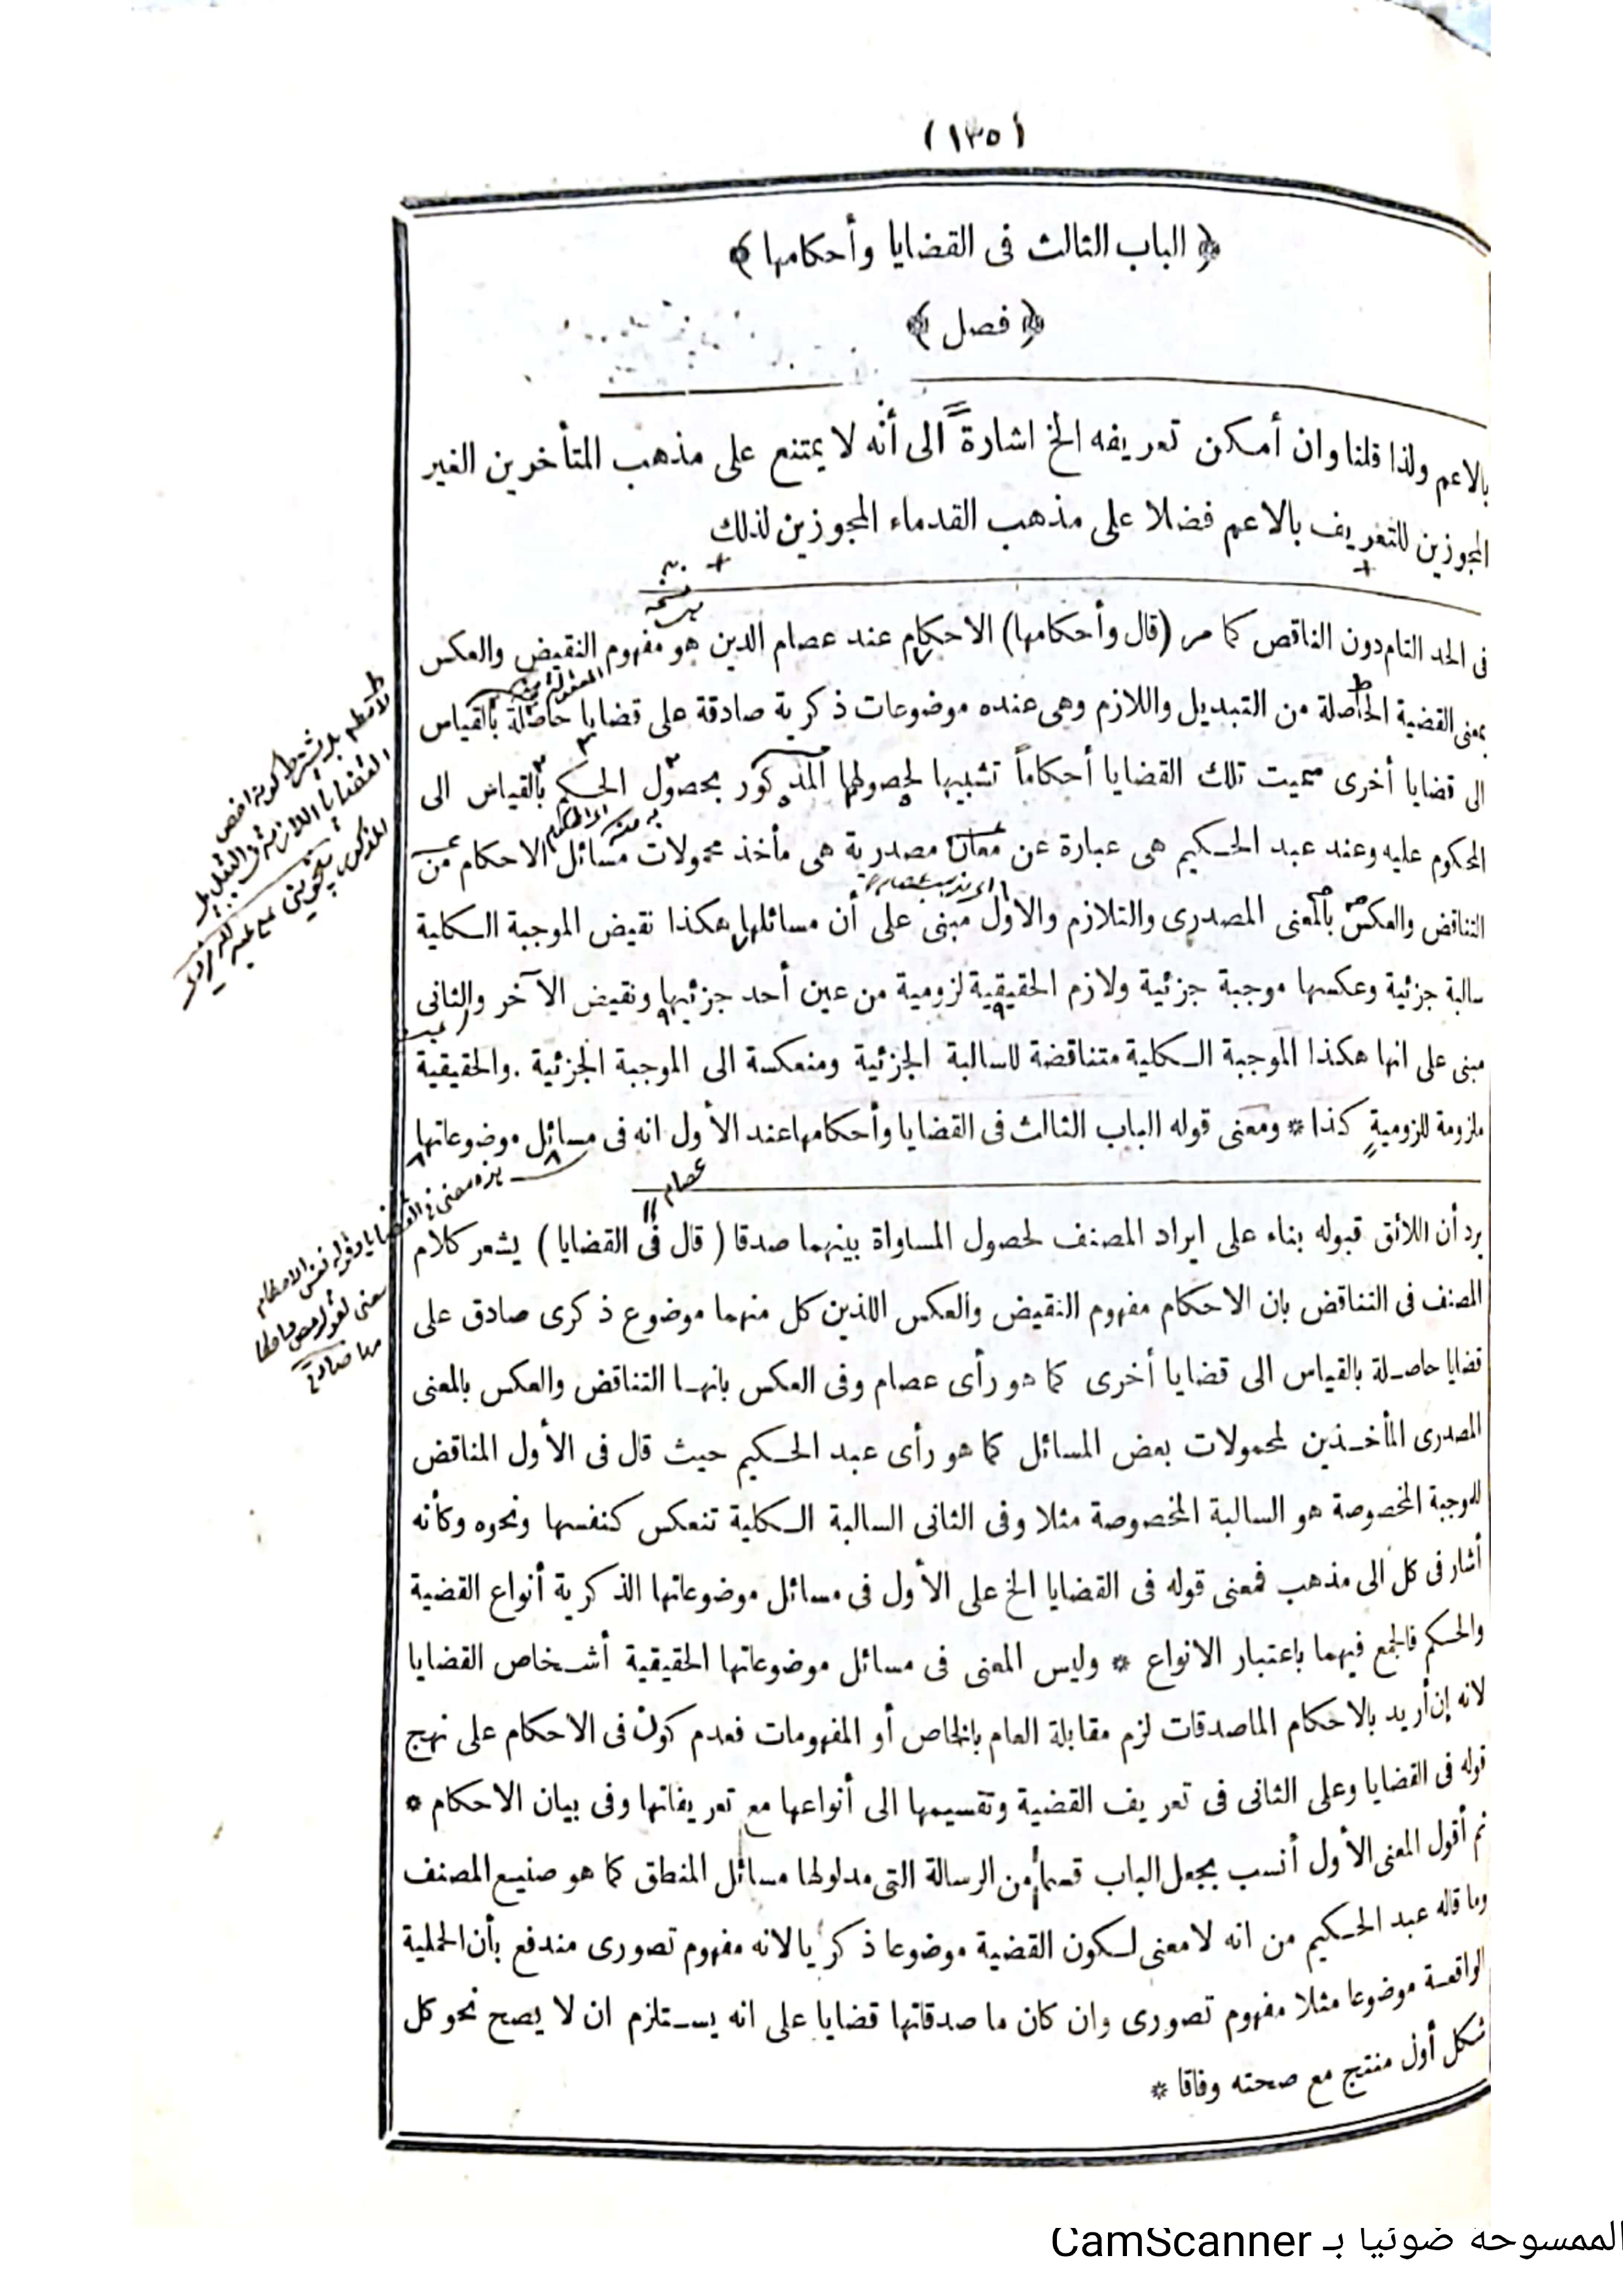 (١٣٥)
﴿ الباب الثالث فى القضايا وأحكامها ﴾
﴿ فصل ﴾
بالاعم ولذا قلنا وان أمكن تعريفه الخ اشارة الى أنه لا يمتنع على مذهب المتأخرين الغير
المجوزين للتعريف بالاعم فضلا على مذهب القدماء المجوزين لذلك
فى الحد التام دون الناقص كما مر (قال وأحكامها) الاحكام عند عصام الدين هو مفهوم النقيض والعكس
بمعنى القضية الحاصلة من التبديل واللازم وهى عنده موضوعات ذكرية صادقة على قضايا حاصلة بالقياس
الى قضايا أخرى سميت تلك القضايا أحكاماً تشبيها لحصولها المذكور بحصول الحكم بالقياس الى
المحكوم عليه وعند عبد الحكيم هى عبارة عن معان مصدرية هى مأخذ محمولات مسائل الاحكام من
التناقض والعكس بالمعنى المصدرى والتلازم والاول مبنى على أن مسائلها هكذا نقيض الموجبة الكلية
سالبة جزئية وعكسها موجبة جزئية ولازم الحقيقية لزومية من عين أحد جزئيها ونقيض الآخر والثانى
مبنى على انها هكذا الموجبة الكلية متناقضة للسالبة الجزئية ومنعكسة الى الموجبة الجزئية . والحقيقية
ملزومة للزومية كذا * ومعنى قوله الباب الثالث فى القضايا وأحكامها عند الأول انه فى مسائل موضوعاتها
عصام
يرد أن اللائق قبوله بناء على ايراد المصنف لحصول المساواة بينهما صدقا (قال فى القضايا) يشعر كلام
المصنف فى التناقض بان الاحكام مفهوم النقيض والعكس اللذين كل منهما موضوع ذكرى صادق على
قضايا حاصلة بالقياس الى قضايا أخرى كما هو رأى عصام وفى العكس بانها التناقض والعكس بالمعنى
المصدرى المأخذين لمحمولات بعض المسائل كما هو رأى عبد الحكيم حيث قال فى الأول المناقض
للموجبة المخصوصة هو السالبة المخصوصة مثلا وفى الثانى السالبة الكلية تنعكس كنفسها ونحوه وكأنه
أشار فى كل الى مذهب فمعنى قوله فى القضايا الخ على الأول فى مسائل موضوعاتها الذكرية أنواع القضية
والحكم فالجمع فيهما باعتبار الانواع * وليس المعنى فى مسائل موضوعاتها الحقيقية أشخاص القضايا
لانه إن أريد بالاحكام الماصدقات لزم مقابلة العام بالخاص أو المفهومات فعدم كون فى الاحكام على نهج
قوله فى القضايا وعلى الثانى فى تعريف القضية وتقسيمها الى أنواعها مع تعريفاتها وفى بيان الاحكام *
ثم أقول المعنى الأول أنسب بجعل الباب قسما من الرسالة التى مدلولها مسائل المنطق كما هو صنيع المصنف
وما قاله عبد الحكيم من انه لا معنى لكون القضية موضوعا ذكريا لانه مفهوم تصورى مندفع بأن الحملية
الواقعة موضوعا مثلا مفهوم تصورى وان كان ما صدقاتها قضايا على انه يستلزم ان لا يصح نحو كل
شكل أول منتج مع صحته وفاقا *
الممسوحة ضوئيا بـ CamScanner